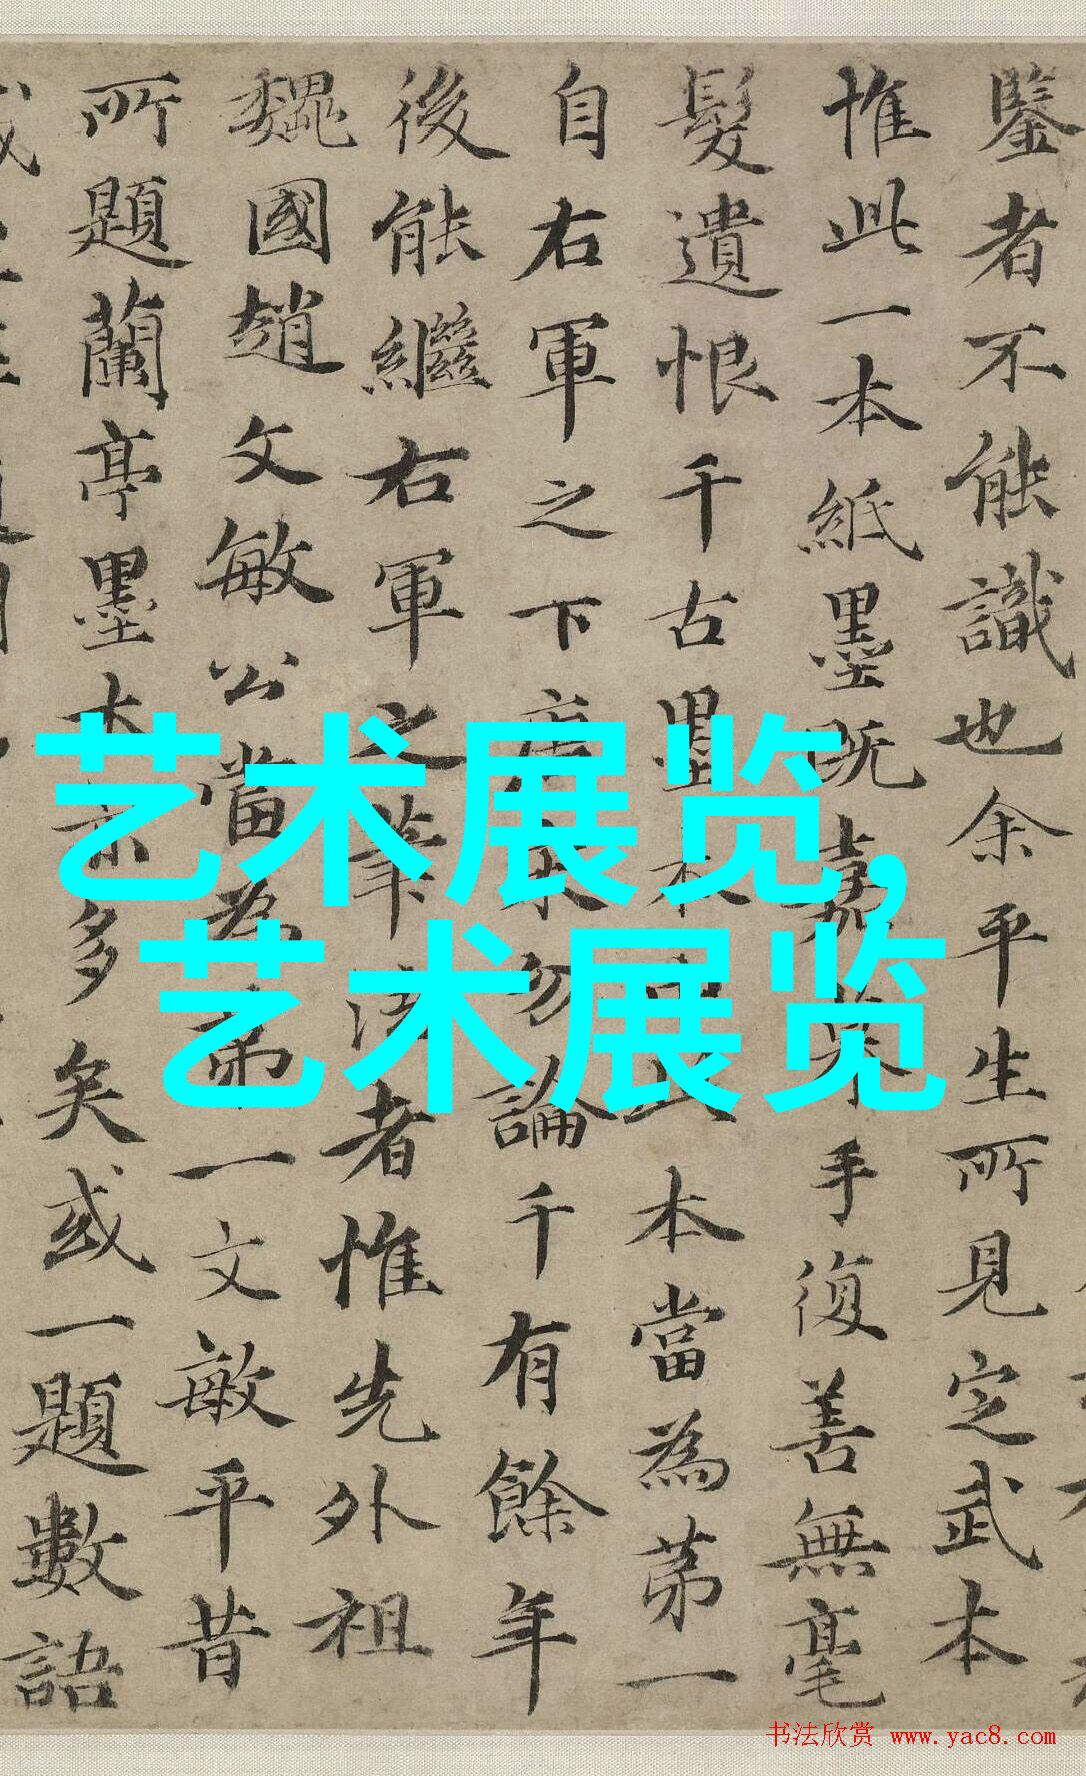 鑒者不能識也余平生所見定武本
惟此一本紙墨既嘉摹手復善無毫
髮遺恨千古墨本此本當為第一
自右軍之下勿論千有餘年
後能繼右軍之筆法者惟先外祖
魏國趙文敏公當為弟一文敏平昔
所題蘭亭墨本亦多矣或一題數語
艺术展览,
艺术展览
书法欣赏 www.yac8.com